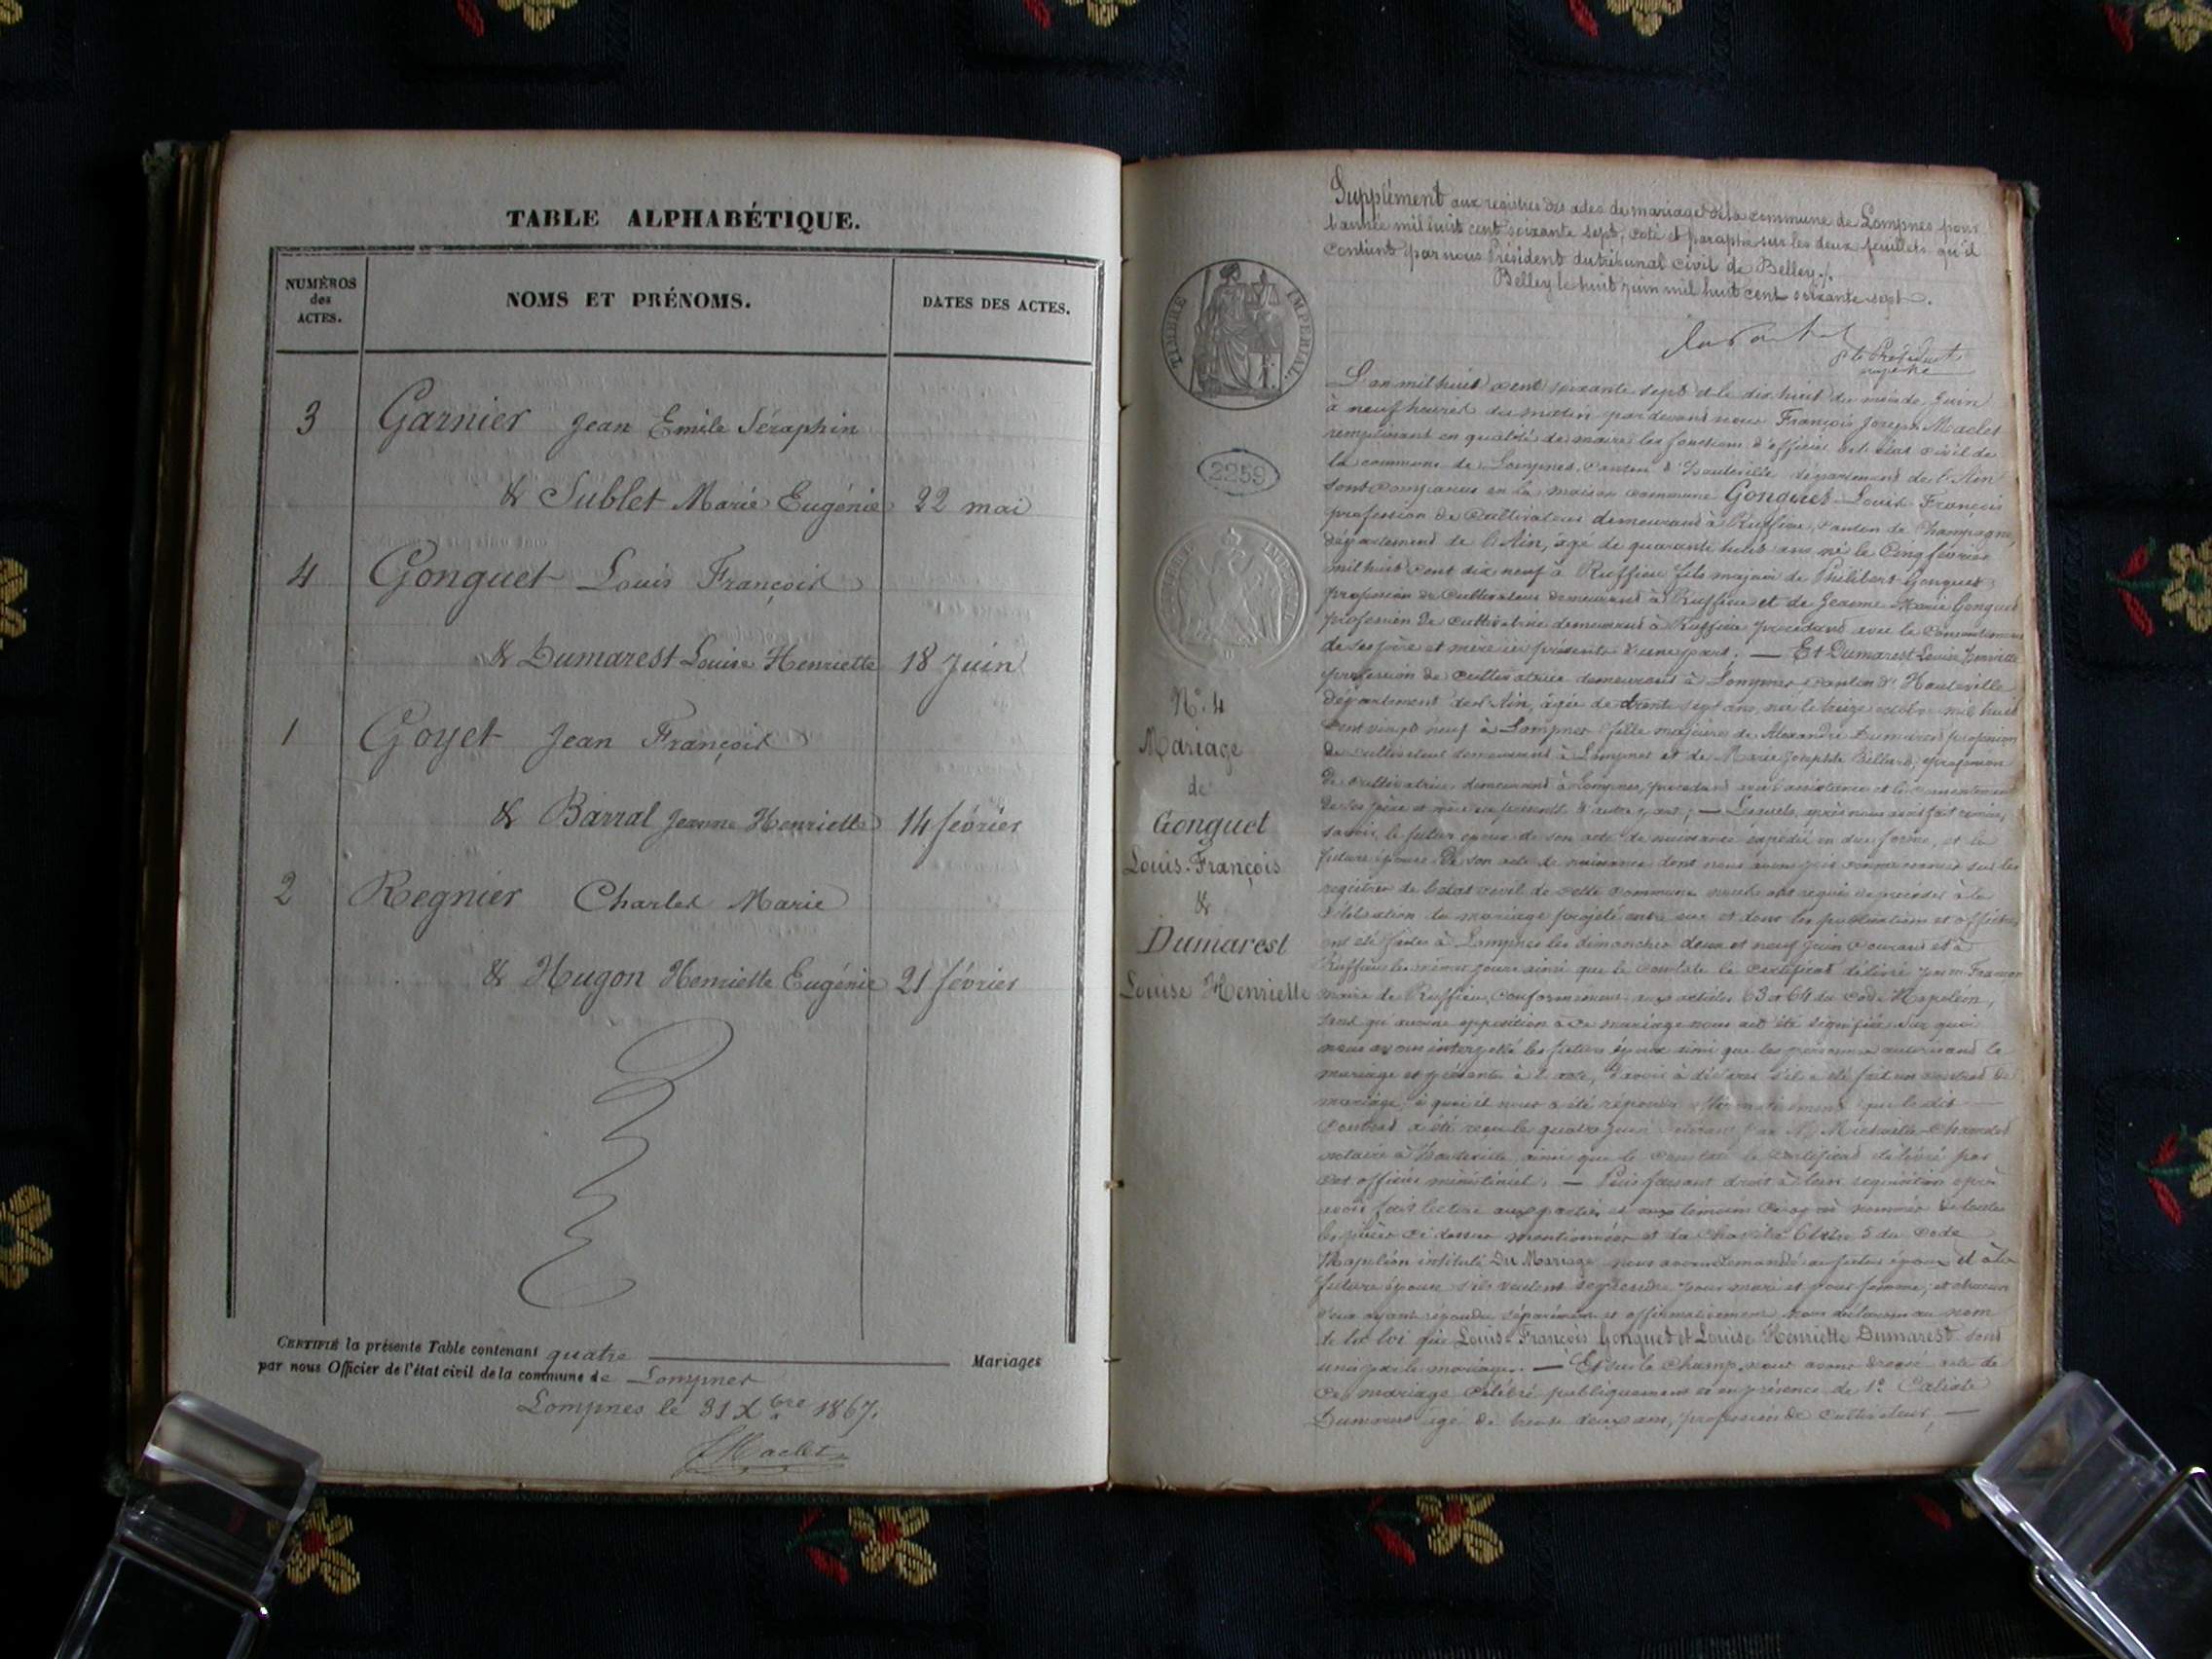 TABLE ALPHABÉTIQUE.
NUMÉROS
des
ACTES.
NOMS ET PRÉNOMS.
DATES DES ACTES.
3 Garnier Jean Emile Séraphin
& Sublet Marie Eugénie 22 mai
4 Gonguet Louis François
& Dumarest Louise Henriette 18 Juin
1 Goyet Jean François
& Barral Jeanne Henriette 14 février
2 Regnier Charles Marie
& Hugon Henriette Eugénie 21 février
CERTIFIÉ la présente Table contenant quatre Mariages
par nous Officier de l'état civil de la commune de Lompnes
Lompnes le 31 Xbre 1867.
F Maclet
Supplément aux registres des actes de mariage de la commune de Lompnes pour
l'année mil huit cent soixante sept, coté et paraphé sur les deux feuillets qu'il
contient par nous Président du tribunal civil de Belley./.
Belley le huit juin mil huit cent soixante sept.
TIMBRE IMPERIAL
2259
N°. 4
Mariage
de
Gonguet
Louis-François
&
Dumarest
Louise Henriette
L'an mil huit cent soixante sept et le dix huit du mois de Juin
à neuf heures du matin par devant nous François Joseph Maclet
remplissant en qualité de maire les fonctions d'officier de l'état civil de
la commune de Lompnes, canton d'Hauteville, département de l'Ain
sont comparus en la maison commune Gonguet Louis François
profession de cultivateur demeurant à Ruffieu, canton de Champagne,
département de l'Ain, âgé de quarante huit ans né le cinq février
mil huit cent dix neuf à Ruffieu fils majeur de Philibert Gonguet
profession de cultivateur demeurant à Ruffieu et de Jeanne Marie Gonguet
profession de cultivatrice demeurant à Ruffieu procédant avec le consentement
de ses père et mère ici présents d'une part. — Et Dumarest Louise Henriette
profession de cultivatrice demeurant à Lompnes canton d'Hauteville
département de l'Ain, âgée de trente sept ans, née le treize octobre mil huit
cent vingt neuf à Lompnes fille majeure de Alexandre Dumarest profession
de cultivateur demeurant à Lompnes et de Marie Josephte Billard, profession
de cultivatrice demeurant à Lompnes, procédant avec l'assistance et le consentement
de ses père et mère ici présents d'autre part; — Lesquels, après nous avoir fait remise,
savoir, le futur époux de son acte de naissance expédié en due forme, et la
future épouse de son acte de naissance dont nous avons pris connaissance sur les
registres de l'état civil de cette commune nous ont requis de procéder à la
célébration du mariage projeté entre eux et dont les publications et affiches
ont été faites à Lompnes les dimanches deux et neuf Juin courant et à
Ruffieu les mêmes jours ainsi que le constate le certificat délivré par m.
maire de Ruffieu, conformément aux articles 63 et 64 du Code Napoléon,
sans qu'aucune opposition à ce mariage nous ait été signifiée. Sur quoi
nous avons interpellé les futurs époux ainsi que les personnes autorisant le
mariage et présentes à l'acte, d'avoir à déclarer s'il a été fait un contrat de
mariage, à quoi il nous a été répondu affirmativement que le dit
contrat a été reçu le quatre juin courant par Me
notaire à Hauteville, ainsi que le constate le certificat délivré par
cet officier ministériel. — Puis faisant droit à leur réquisition après
avoir fait lecture aux parties et aux témoins ci-après nommés de toutes
les pièces ci dessus mentionnées et du chapitre 6 titre 5 du Code
Napoléon intitulé Du Mariage nous avons demandé au futur époux et à la
future épouse s'ils veulent se prendre pour mari et pour femme; et chacun
d'eux ayant répondu séparément et affirmativement nous déclarons au nom
de la loi que Louis François Gonguet et Louise Henriette Dumarest sont
unis par le mariage. — Et sur le champ, nous avons dressé acte de
ce mariage célébré publiquement et en présence de 1° Calixte
Dumarest âgé de trente deux ans, profession de cultivateur, —